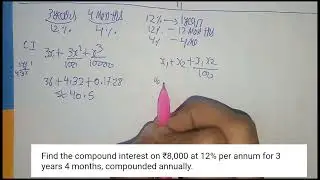 3 years 4 months
12% 4%
12% → 1 year
12% – 12 months
4% – 4 mo
C.I
3x + 3x²/100 + x³/10000
x₁ + x₂ + x₁x₂/100
36 + 4.32 + 0.1728
≈ 40.5
Find the compound interest on ₹8,000 at 12% per annum for 3
years 4 months, compounded annually.